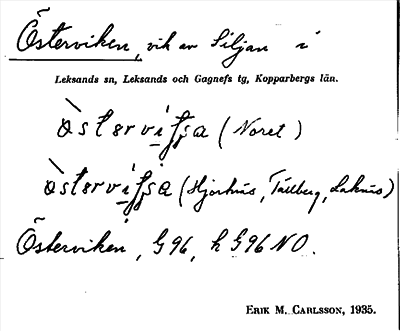 Österviken, vik av Siljan i
Leksands sn, Leksands och Gagnefs tg, Kopparbergs län.
(Noret)
(Hjortnäs, Tällberg, Laknäs)
Österviken, G96, h G96 NO.
ERIK M. CARLSSON, 1935.